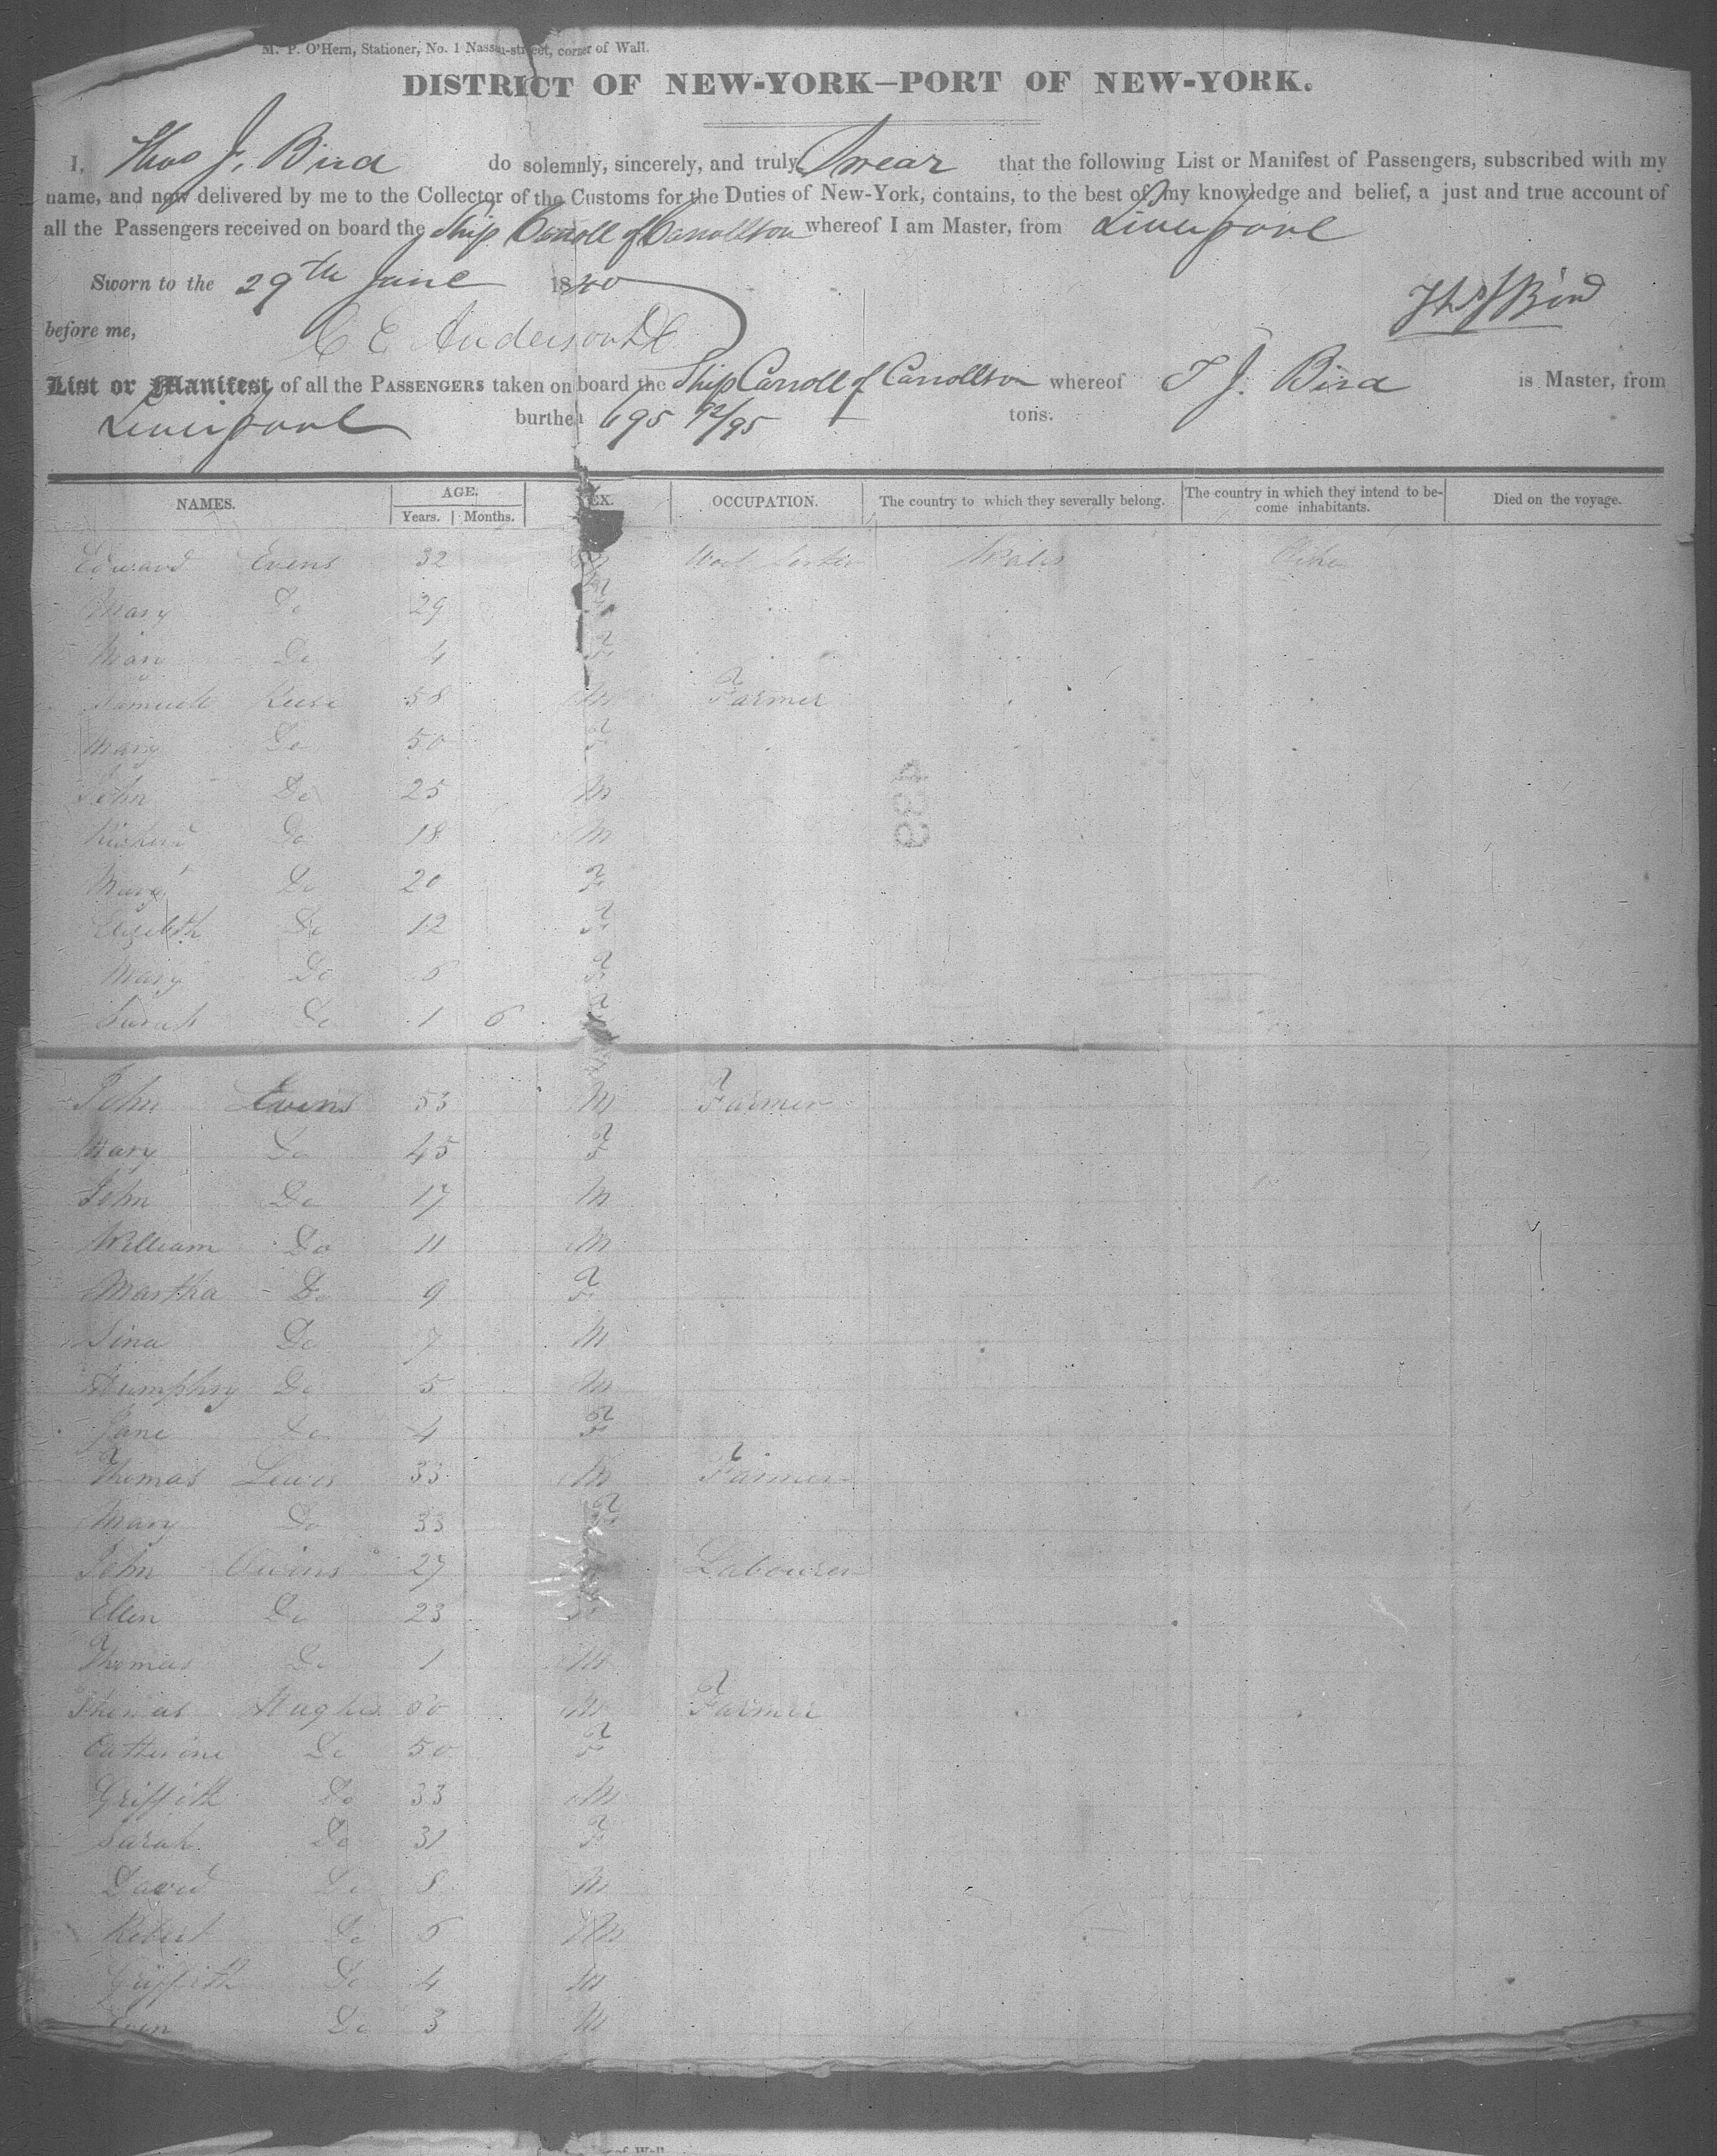 M. P. O'Hern, Stationer, No. 1 Nassau-street, corner of Wall.
DISTRICT OF NEW-YORK—PORT OF NEW-YORK.
I, Thos J. Bird do solemnly, sincerely, and truly Swear that the following List or Manifest of Passengers, subscribed with my
name, and now delivered by me to the Collector of the Customs for the Duties of New-York, contains, to the best of my knowledge and belief, a just and true account of
all the Passengers received on board the Ship Carroll of Carrollton whereof I am Master, from Liverpool
Sworn to the 29th June 1840
Thos J Bird
before me, C E Anderson DC
List or Manifest of all the PASSENGERS taken on board the Ship Carroll of Carrollton whereof T J. Bird is Master, from
Liverpool burthen 695 92/95 tons.
NAMES. AGE. SEX. OCCUPATION. The country to which they severally belong. The country in which they intend to become inhabitants. Died on the voyage.
Years. Months.
Edward Evens 32 Wales
Mary Do 29 F
Mary Do 4 F
Samuell Reese 58 M Farmer
Mary Do 50 F
John Do 25 M
Richard Do 18 M
Do 20 F
Elizabeth Do 12 F
Mary Do 6 F
Sarah Do 1 6 F
John Evens 53 M Farmer
Mary Do 45 F
John Do 17 M
William Do 11 M
Martha Do 9 F
Sina Do 7 M
Humphry Do 5 M
Jane Do 4 F
Thomas Lewis 33 M Farmer
Mary Do 33 F
John Owins 27 Labourer
Ellen Do 23 F
Thomas Do 1 M
Thomas Hughes M Farmer
Catherine Do 50 F
Griffith Do 33 M
Sarah Do 31 F
David Do 8 M
Robert Do 6 M
Griffith Do 4 M
Even Do 3 M